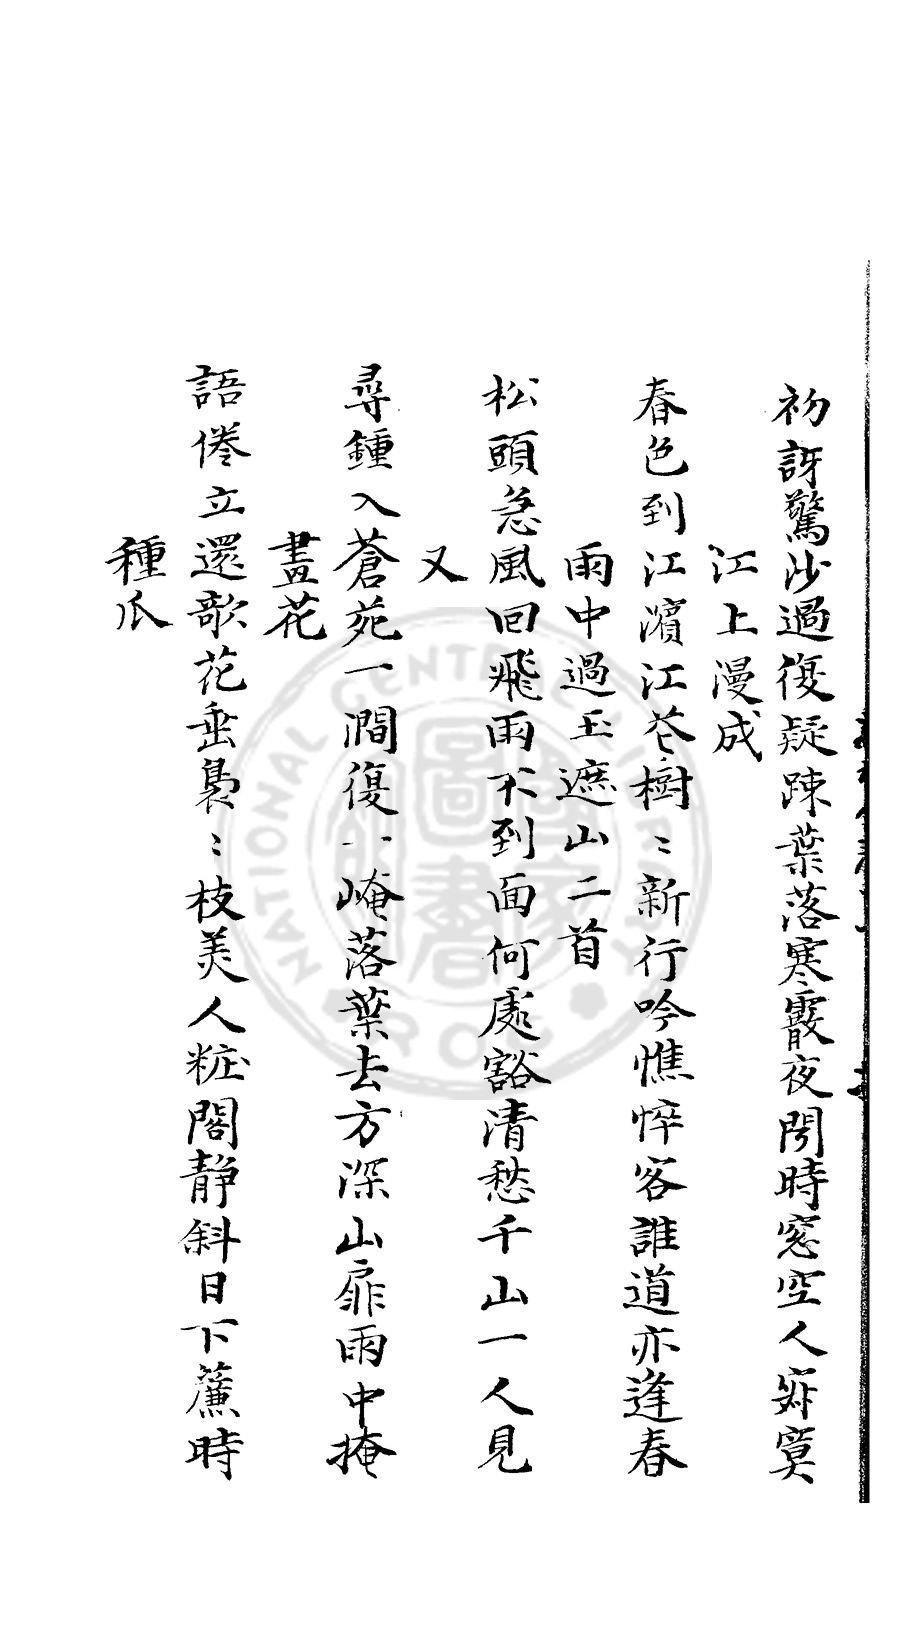 初訝驚沙過復疑踈葉落寒霰夜閒時窓空人寂寞
江上漫成
春色到江濱江花樹〻新行吟憔悴客誰道亦逢春
雨中過玉遮山二首
松頭急風回飛雨不到面何處豁清愁千山一人見
又
尋鍾入蒼苑一澗復一崦落葉去方深山扉雨中掩
畫花
語倦立還歌花垂裊〻枝美人粧閣静斜日下簾時
種瓜
NATIONAL CENTRAL LIBRARY
R.O.C
國家圖書館